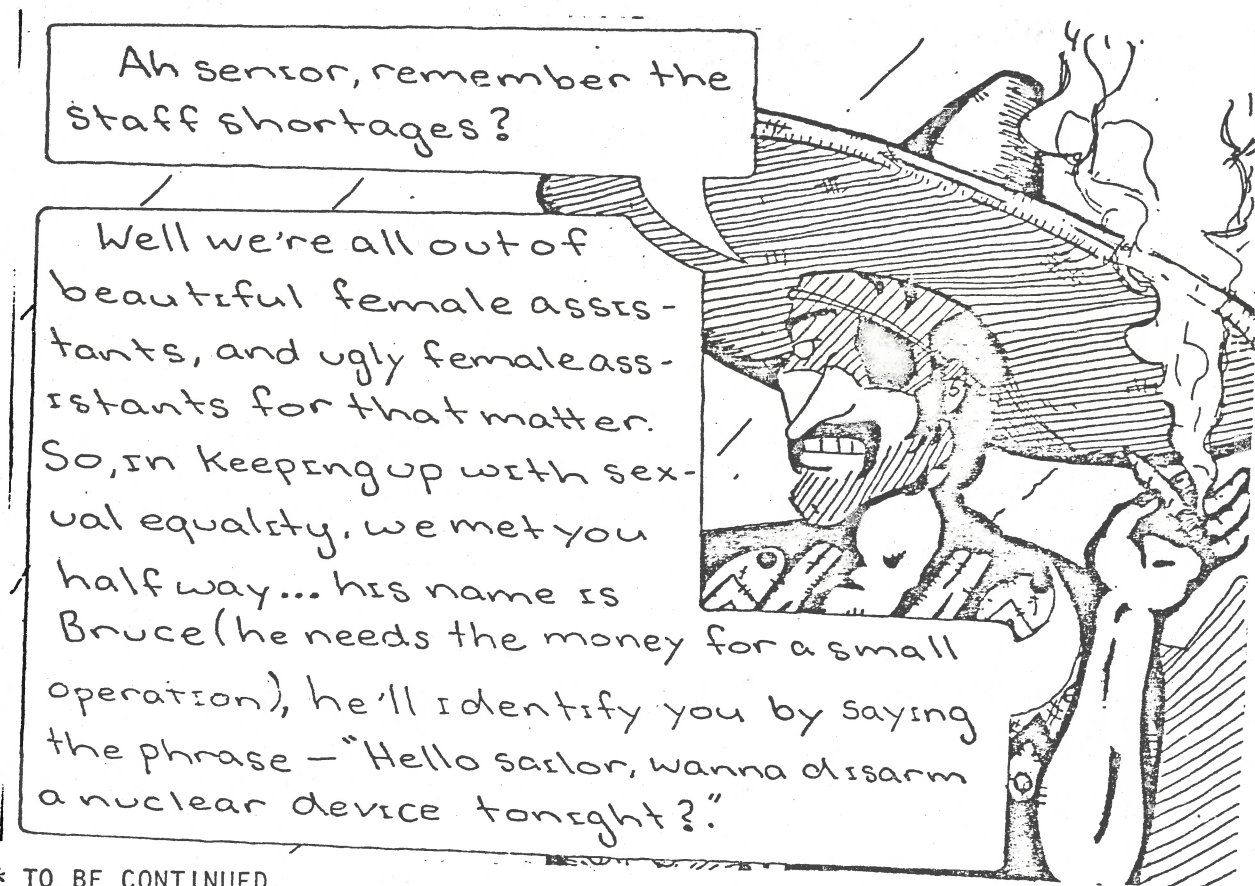 Ah senior, remember the
staff shortages?
Well we're all out of
beautiful female assis-
tants, and ugly female ass-
istants for that matter.
So, in keeping up with sex-
ual equality, we met you
half way... his name is
Bruce (he needs the money for a small
operation), he'll identify you by saying
the phrase — "Hello sailor, wanna disarm
a nuclear device tonight?".
* TO BE CONTINUED